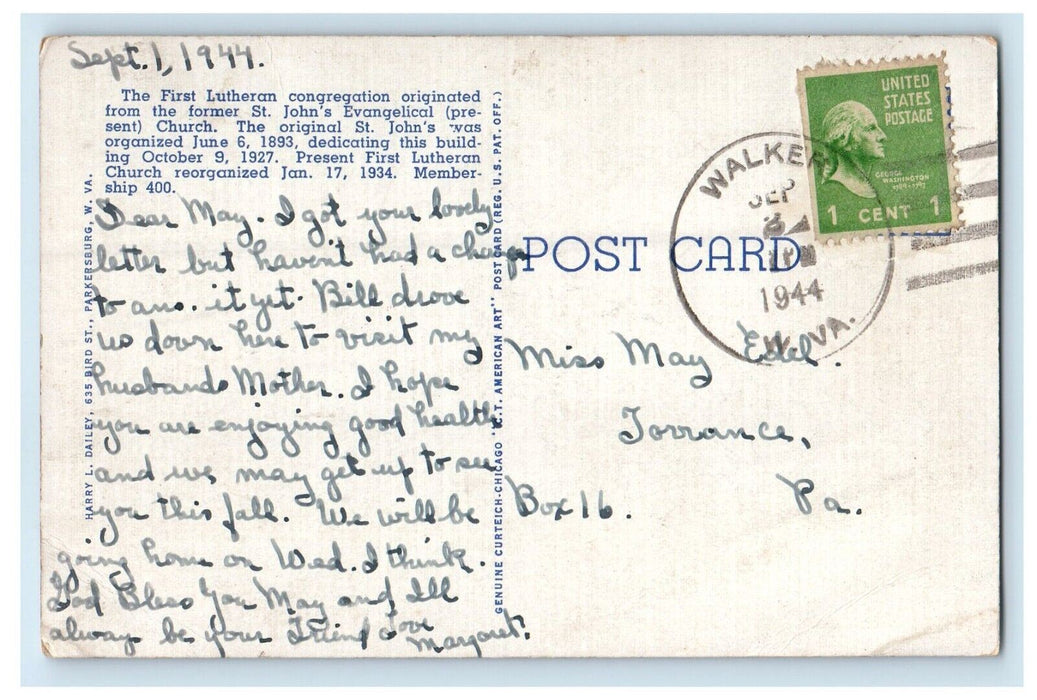 Sept. 1, 1944.
The First Lutheran congregation originated
from the former St. John's Evangelical (pre-
sent) Church. The original St. John's was
organized June 6, 1893, dedicating this build-
ing October 9, 1927. Present First Lutheran
Church reorganized Jan. 17, 1934. Member-
ship 400.
Dear May. I got your lovely
letter but haven't had a change
to ans. it yet. Bill drove
us down here to visit my
husbands Mother. I hope
you are enjoying good health
and we may get up to see
you this fall. We will be
going home on Wed. I think.
God Bless You May and Ill
alway be your Friend Love
Margaret.
HARRY L. DAILEY, 635 BIRD ST., PARKERSBURG, W. VA.
GENUINE CURTEICH-CHICAGO "C.T. AMERICAN ART" POST CARD (REG. U.S. PAT. OFF.)
POST CARD
WALKER
SEP
2
1944
W. VA.
UNITED
STATES
POSTAGE
GEORGE
WASHINGTON
1789-1797
1 CENT 1
Miss May Edel.
Torrance,
Box 16. Pa.